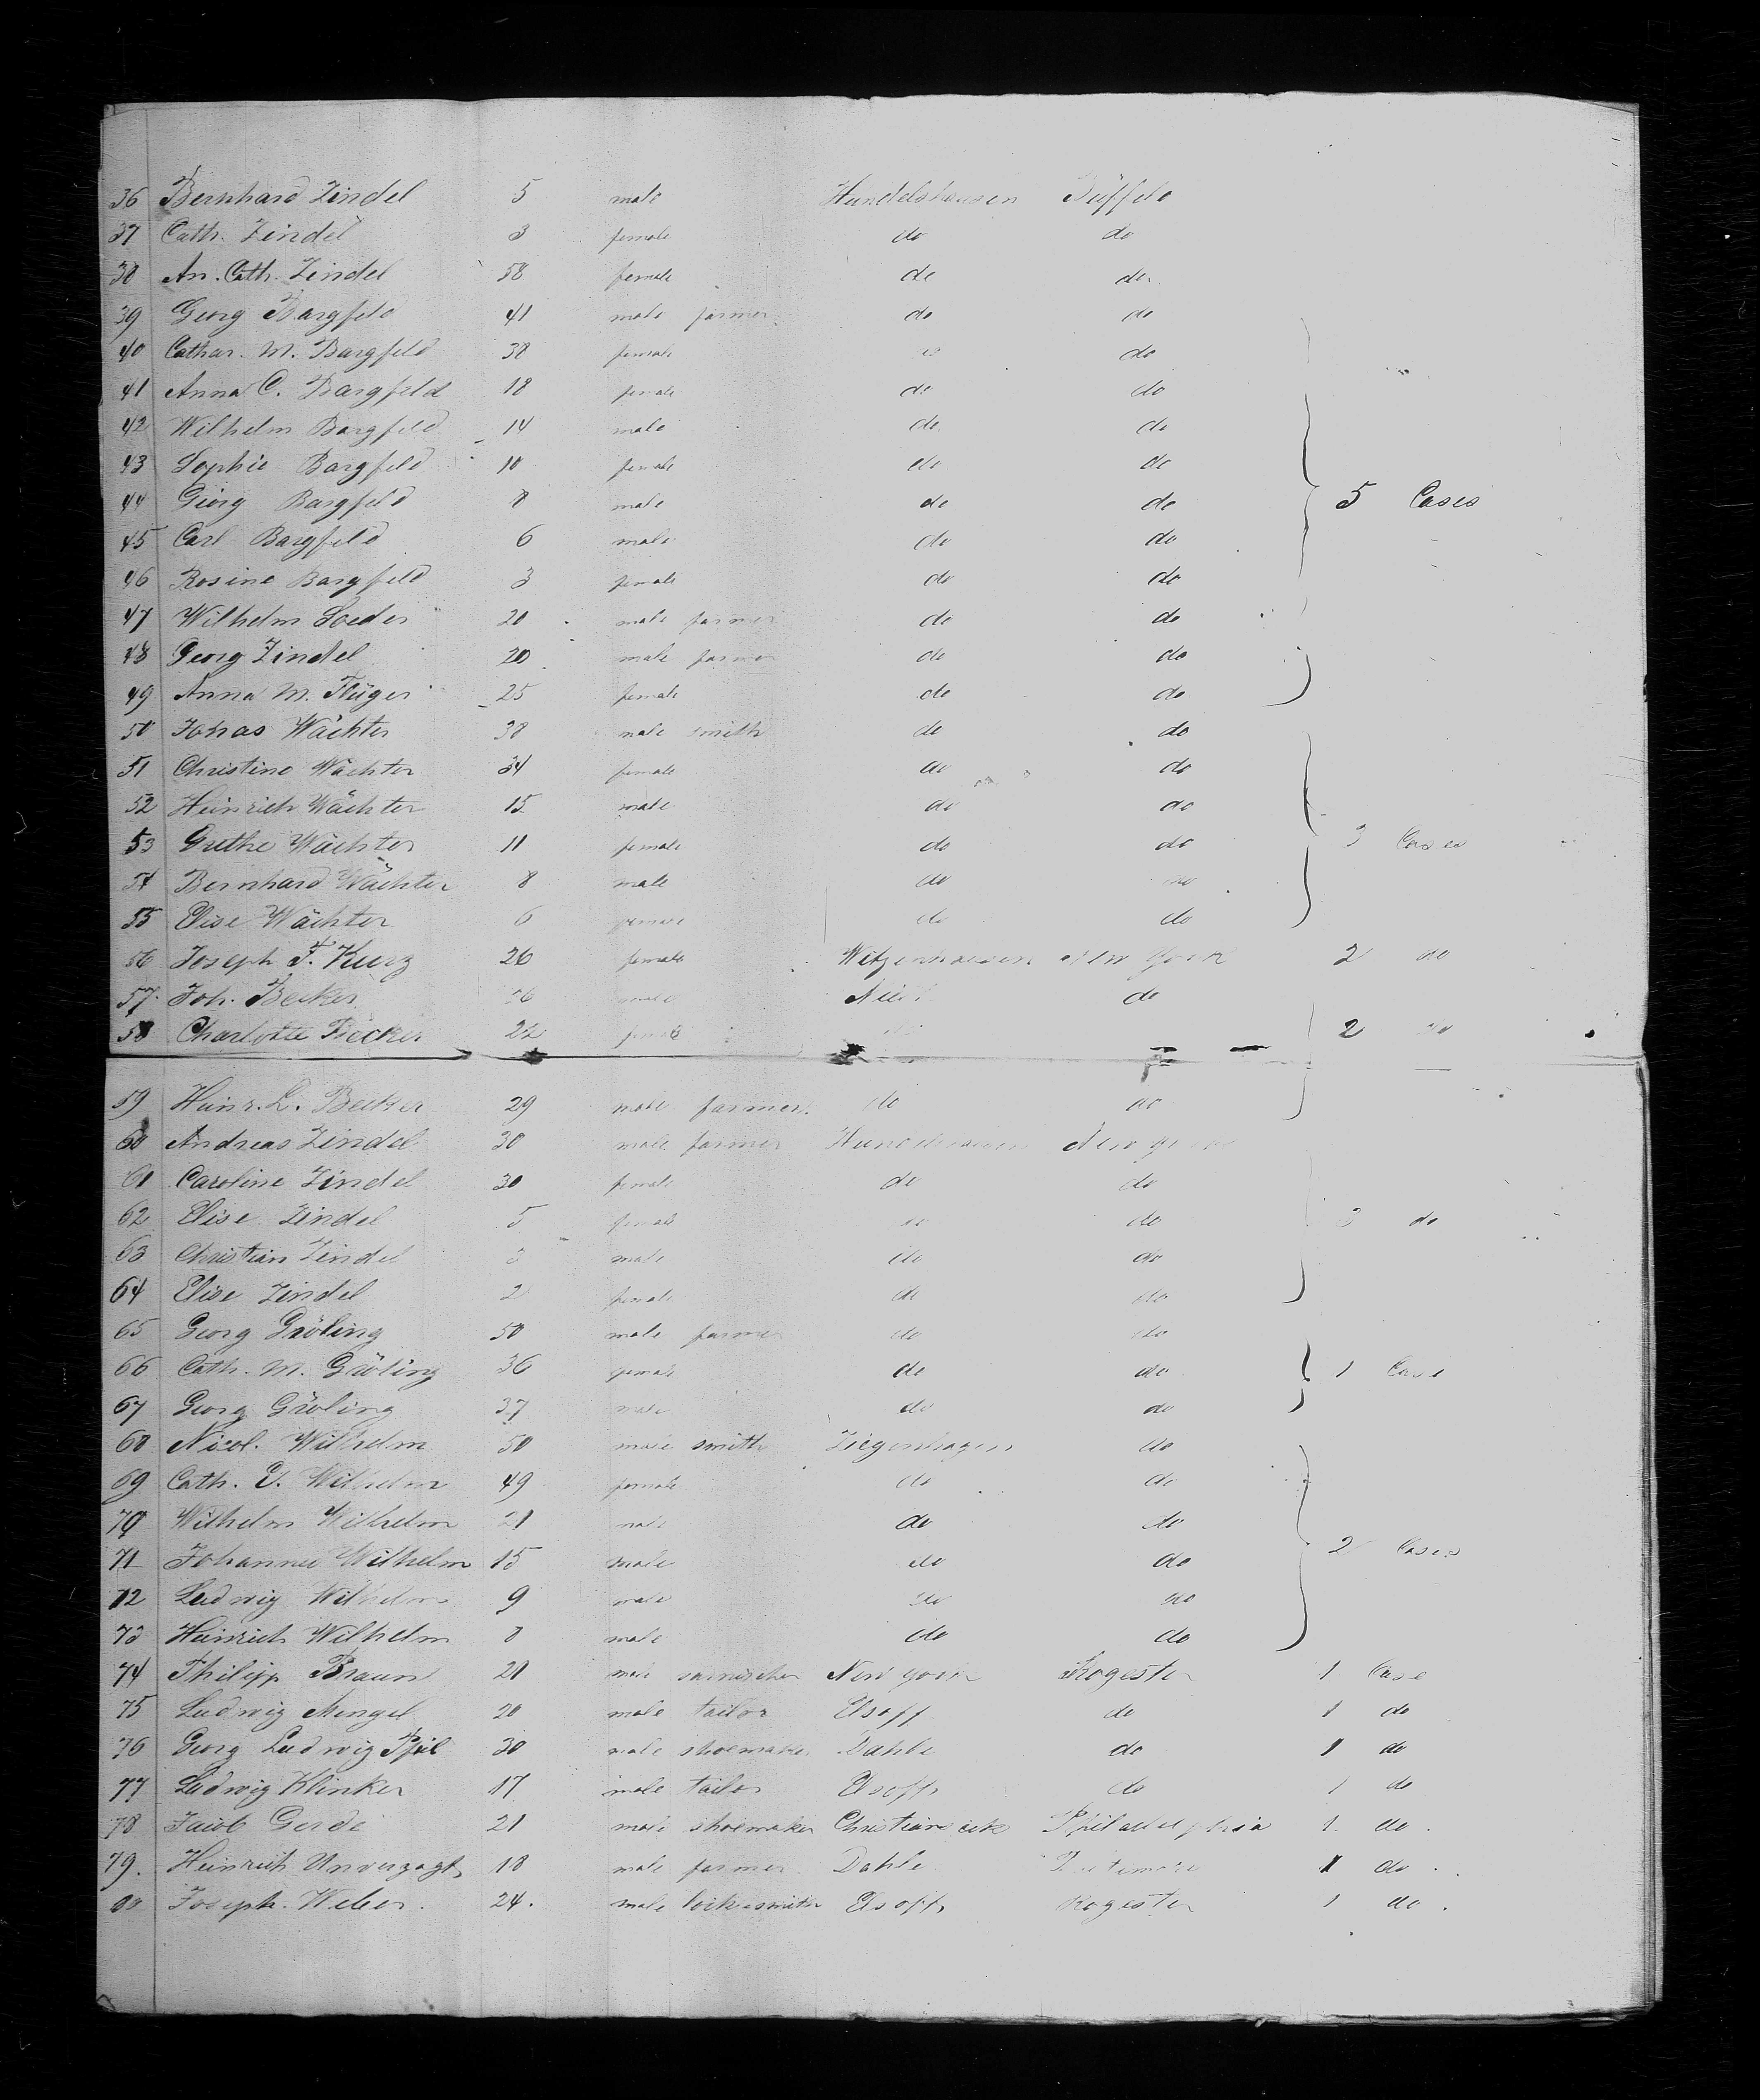 36 Bernhard Zindel 5 male Hundelshausen Büffelo
37 Cath. Zindel 3 female do do
38 An. Cath. Zindel 58 female do do
39 Georg Bargfeld 41 male farmer do do
40 Cathar. M. Bargfeld 38 female do do
41 Anna C. Bargfeld 18 female do do
42 Wilhelm Bargfeld 14 male do do
43 Sophie Bargfeld 10 female do do
44 Georg Bargfeld 8 male do do 5 Cases
45 Carl Bargfeld 6 male do do
46 Rosine Bargfeld 3 female do do
47 Wilhelm 20 male farmer do do
48 Georg Zindel 20 male farmer do do
49 Anna M. 25 female do do
50 Johas Wächter 38 male smith do do
51 Christine Wächter 34 female do do
52 Heinrich Wächter 15 male do do
53 Grethe Wächter 11 female do do 3 Cases
54 Bernhard Wächter 8 male do do
55 Elise Wächter 6 female do do
56 Joseph F. Kurz 26 female Witzenhausen New York 2 do
57 Joh. Becker do
58 Charlotte Becker 22 female 2 do
59 Heinr. L. Becker 29 male farmer do do
60 Andreas Zindel 30 male farmer Hundelshausen New York
61 Caroline Zindel 30 female do do
62 Elise Zindel 5 female do do 3 do
63 Christian Zindel 3 male do do
64 Elise Zindel 2 female do do
65 Georg Gröling 50 male farmer do do
66 Cath. M. Gröling 36 female do do 1 Case
67 Georg Gröling 37 male do do
68 Nicol. Wilhelm 50 male smith Ziegenhagen do
69 Cath. E. Wilhelm 49 female do do
70 Wilhelm Wilhelm 21 male do do
71 Johannes Wilhelm 15 male do do 2 Cases
72 Ludwig Wilhelm 9 male do do
73 Heinrich Wilhelm 8 male do do
74 Philipp Braun 20 male New York Rogester 1 Case
75 Ludwig Mengel 20 male tailor Elsoff do 1 do
76 Georg Ludwig 30 male shoemaker Dahle do 1 do
77 Ludwig Klinker 17 male tailor Elsoff do 1 do
78 Jacob Gerde 21 male shoemaker Philadelphia 1 do
79. Heinrich Unverzagt 18 male farmer Dahle Baltimore 1 do
80 Joseph Weber 24. male locksmith Elsoff Rogester 1 do